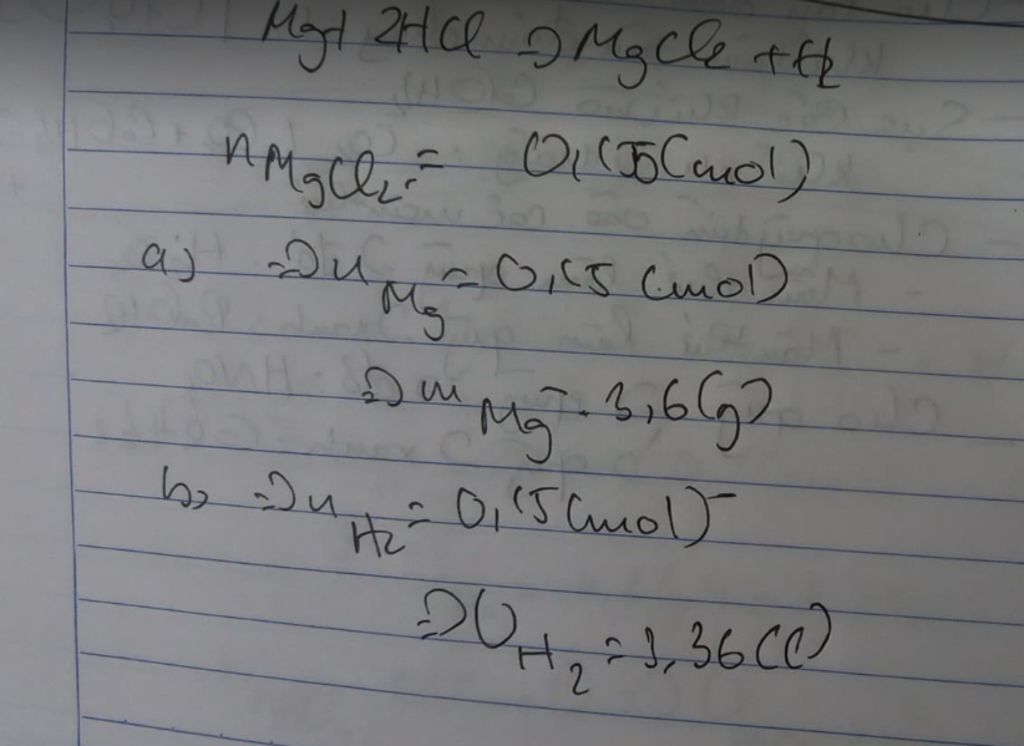 Mg + 2HCl => MgCl2 + H2
nMgCl2 = 0,15 (mol)
a) => nMg = 0,15 (mol)
=> mMg = 3,6 (g)
b) => nH2 = 0,15 (mol)
=> VH2 = 3,36 (l)